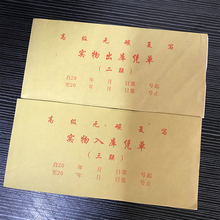 高级无碳复写
实物出库凭单
（二联）
自20 年 月 日第 号起
至20 年 月 日第 号止
高级无碳复写
实物入库凭单
（三联）
自20 年 月 日第 号起
至20 年 月 日第 号止